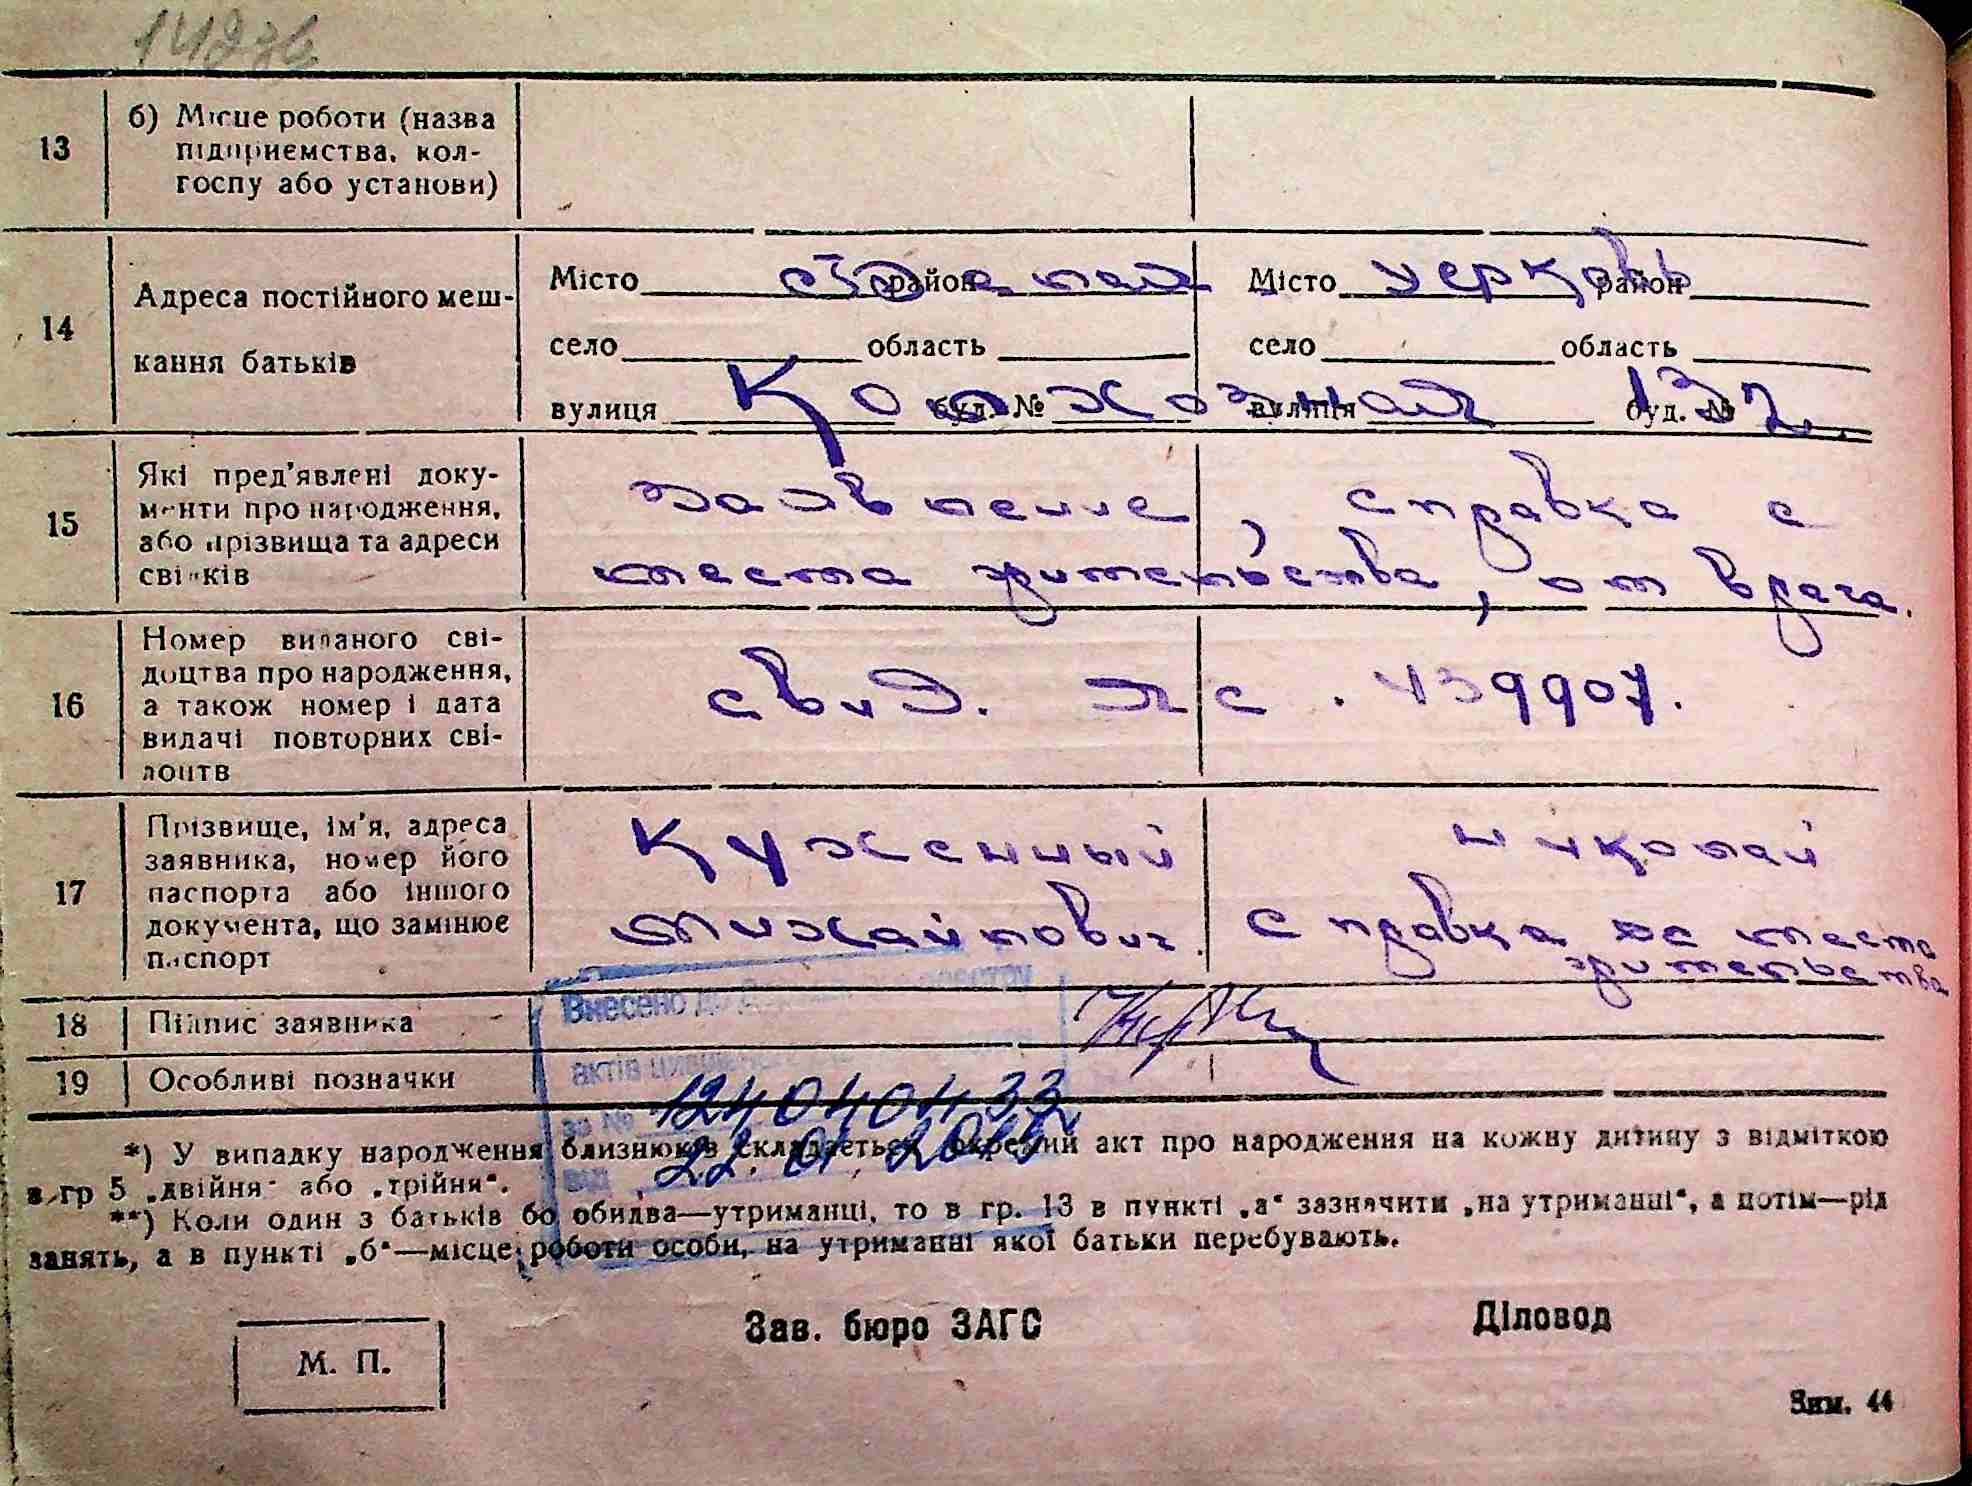 13
б) Місце роботи (назва
підприємства, кол-
госпу або установи)
14
Адреса постійного меш-
кання батьків
Місто район Місто церковь район
село область село область
вулиця Колхозная буд. № вулиця буд. № 132.
15
Які пред'явлені доку-
менти про народження,
або прізвища та адреси
свідків
заявление, справка с
места жительства, от врача.
16
Номер виданого сві-
доцтва про народження,
а також номер і дата
видачі повторних сві-
доцтв
свид. ЯС. 439907.
17
Прізвище, ім'я, адреса
заявника, номер його
паспорта або іншого
документа, що замінює
паспорт
Куженный Николай
Михайлович. справка с места
жительства
18 Підпис заявника
19 Особливі позначки
Внесено до Державного реєстру
актів цивільного
за № 1240404433
від 22.01.2015
*) У випадку народження близнюків складається окремий акт про народження на кожну дитину з відміткою
в гр 5 „двійня“ або „трійня“.
**) Коли один з батьків бо обидва—утриманці, то в гр. 13 в пункті „а“ зазначити „на утриманні“, а потім—рід
занять, а в пункті „б“—місце роботи особи, на утриманні якої батьки перебувають.
Зав. бюро ЗАГС Діловод
М. П.
Зам. 44